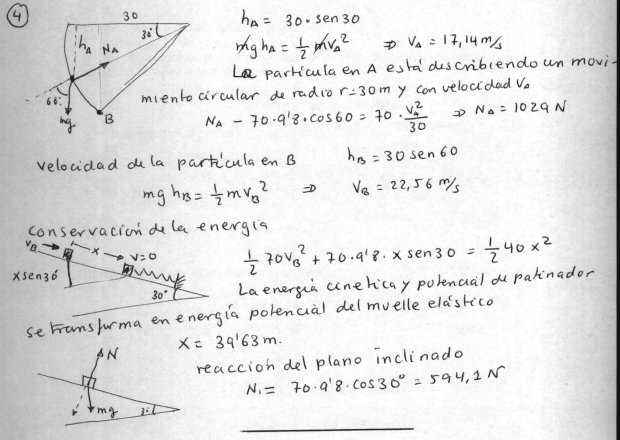 ④
30
h_A = 30·sen30
30°
h_A
N_A
mg h_A = ½ m v_A² ⇒ V_A = 17,14 m/s
La partícula en A está describiendo un movi-
60°
mg
B
miento circular de radio r=30m y con velocidad V_A
N_A - 70·9'8·cos60 = 70·v_A²/30 ⇒ N_A = 1029 N
velocidad de la partícula en B h_B = 30 sen 60
mg h_B = ½ m v_B² ⇒ V_B = 22,56 m/s
conservación de la energía
V_B
x
v=0
xsen30
30°
½ 70 v_B² + 70·9'8·x sen30 = ½ 40 x²
La energía cinetica y potencial de patinador
se transforma en energía potencial del muelle elástico
x = 39'63 m.
reaccion del plano inclinado
N
mg
N = 70·9'8·cos30° = 594,1 N